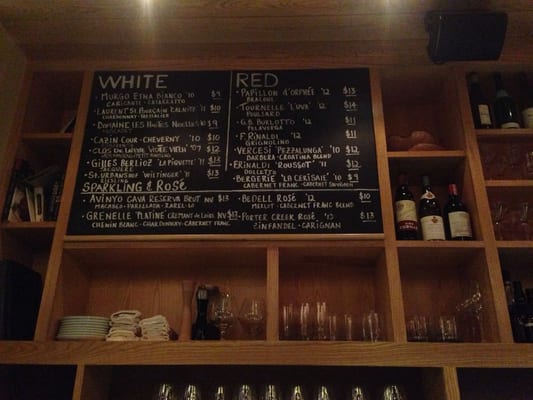 WHITE
MURGO ETNA BIANCO '10 $9
CARICANTE - CATARRATTO
LAURENT ST. POURÇAIN '11 $10
CHARDONNAY - TRESSALIER
DOMAINE LES HAUTES $9
CAZIN COUR-CHEVERNY '10 $10
CLOS DE '07 $12
GILLES BERLIOZ "LA PIQUETTE" '11
ST. URBANSHOF "WILTINGER" '11
RIESLING
RED
PAPILLON D'ORPHÉE '12 $13
TOURNELLE "L'UVA" '12 $14
POULSARD
G.B. BURLOTTO '12 $11
PELAVERGA
F. RINALDI $11
GRIGNOLINO
VERCESI "PEZZALUNGA" '10 $12
BARBERA - CROATINA BLEND
E. RINALDI "ROUSSOT" '11 $12
DOLCETTO
BERGERIE "LA CERISAIE" '10
CABERNET FRANC - CABERNET SAUVIGNON
SPARKLING & ROSÉ
AVINYO CAVA RESERVA BRUT NV $13
MACABEO - PARELLADA - XAREL-LO
GRENELLE "PLATINE" CREMANT DE LOIRE NV $13
CHENIN BLANC - CHARDONNAY - CABERNET FRANC
BEDELL ROSÉ '12 $10
MERLOT - CABERNET FRANC BLEND
PORTER CREEK ROSÉ '13 $13
ZINFANDEL - CARIGNAN